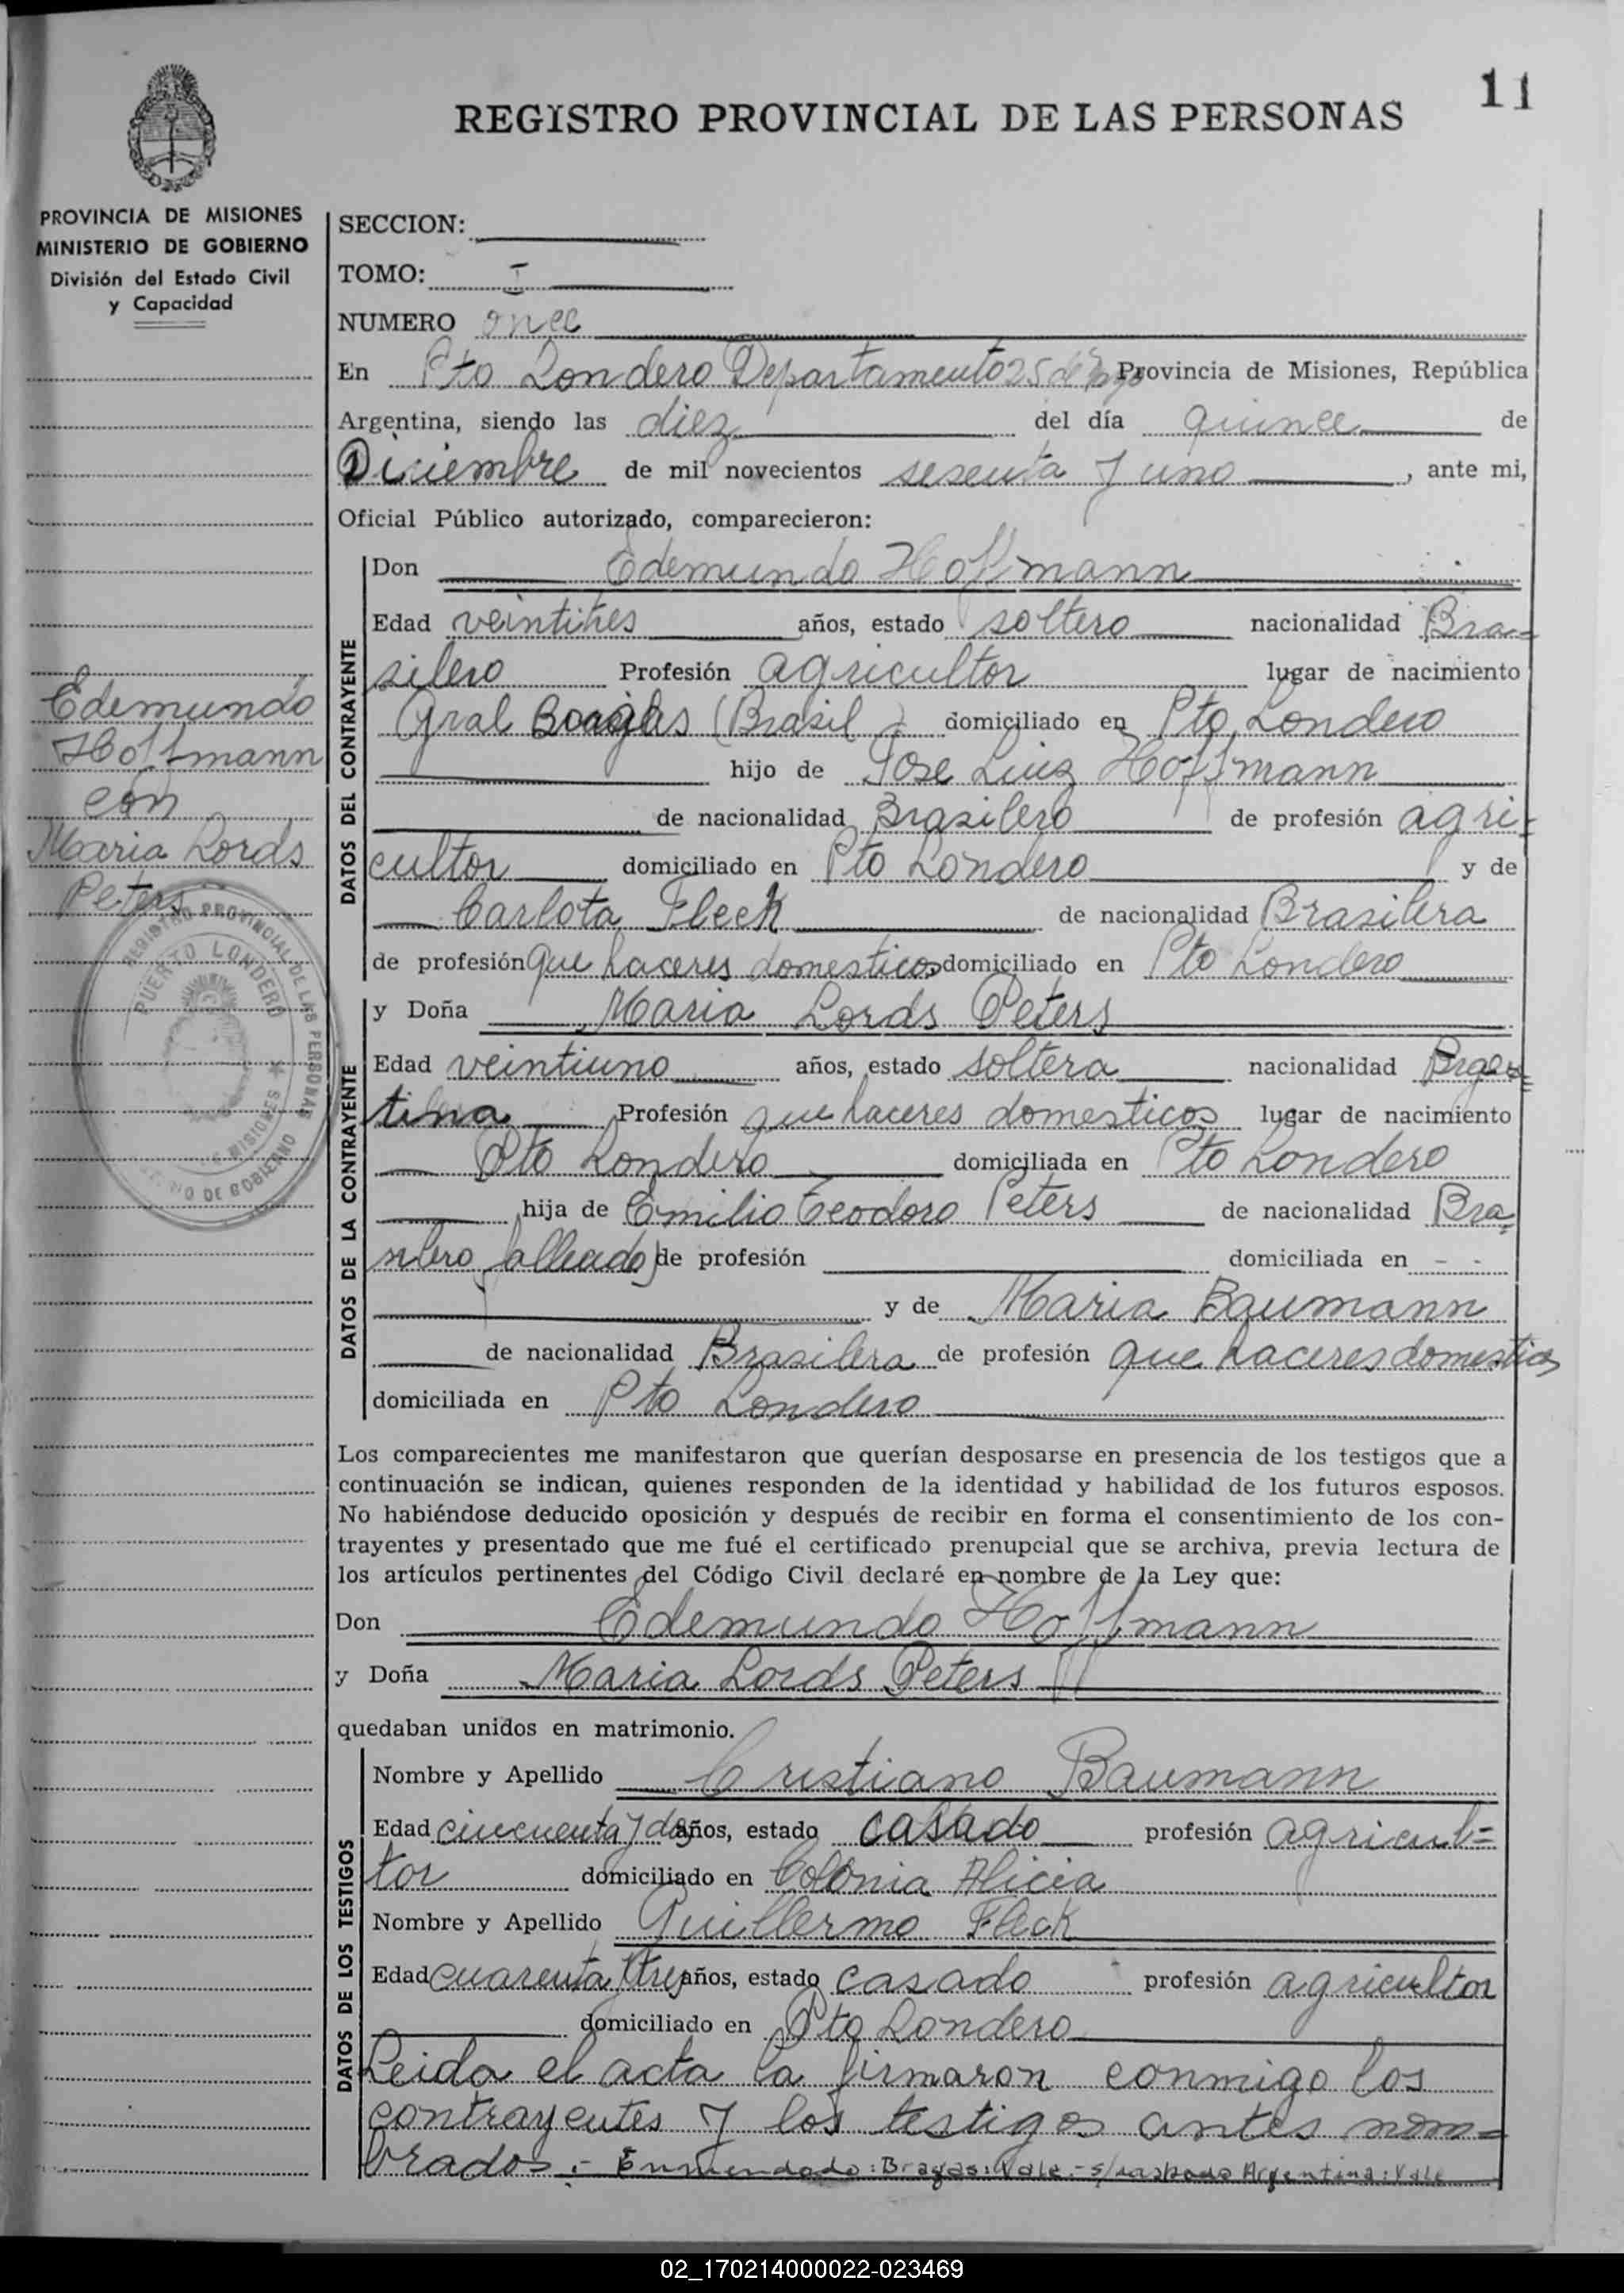 11
REGISTRO PROVINCIAL DE LAS PERSONAS
PROVINCIA DE MISIONES
MINISTERIO DE GOBIERNO
División del Estado Civil
y Capacidad
SECCION:
TOMO: I
NUMERO once
En Pto Londero Departamento 25 de Mayo Provincia de Misiones, República
Argentina, siendo las diez del día quince de
Diciembre de mil novecientos sesenta y uno, ante mi,
Oficial Público autorizado, comparecieron:
DATOS DEL CONTRAYENTE
Don Edemundo Hoffmann
Edad veintitres años, estado soltero nacionalidad Bra=
silero Profesión agricultor lugar de nacimiento
Gral Bragas (Brasil) domiciliado en Pto Londero
hijo de Jose Luiz Hoffmann
de nacionalidad Brasilero de profesión agri=
cultor domiciliado en Pto Londero y de
Carlota Fleck de nacionalidad Brasilera
de profesión que haceres domesticos domiciliado en Pto Londero
DATOS DE LA CONTRAYENTE
y Doña Maria Lords Peters
Edad veintiuno años, estado soltera nacionalidad Argen=
tina Profesión que haceres domesticos lugar de nacimiento
Pto Londero domiciliada en Pto Londero
hija de Emilio Teodoro Peters de nacionalidad Bra=
silero falleado) de profesión domiciliada en - -
y de Maria Baumann
de nacionalidad Brasilera de profesión que haceres domesticos
domiciliada en Pto Londero
Los comparecientes me manifestaron que querían desposarse en presencia de los testigos que a
continuación se indican, quienes responden de la identidad y habilidad de los futuros esposos.
No habiéndose deducido oposición y después de recibir en forma el consentimiento de los con-
trayentes y presentado que me fué el certificado prenupcial que se archiva, previa lectura de
los artículos pertinentes del Código Civil declaré en nombre de la Ley que:
Don Edemundo Hoffmann
y Doña Maria Lords Peters
quedaban unidos en matrimonio.
DATOS DE LOS TESTIGOS
Nombre y Apellido Cristiano Baumann
Edad cincuenta y dos años, estado casado profesión agricul=
tor domiciliado en Colonia Alicia
Nombre y Apellido Guillermo Fleck
Edad cuarenta y tres años, estado casado profesión agricultor
domiciliado en Pto Londero
Leida el acta la firmaron conmigo los
contrayentes y los testigos antes nom=
brados.- Enmendado: Bragas: Vale.- s/raspado Argentina: Vale
Edemundo
Hoffmann
con
Maria Lords
Peters
REGISTRO PROVINCIAL DE LAS PERSONAS
PUERTO LONDERO
MISIONES
DE GOBIERNO
02_170214000022-023469